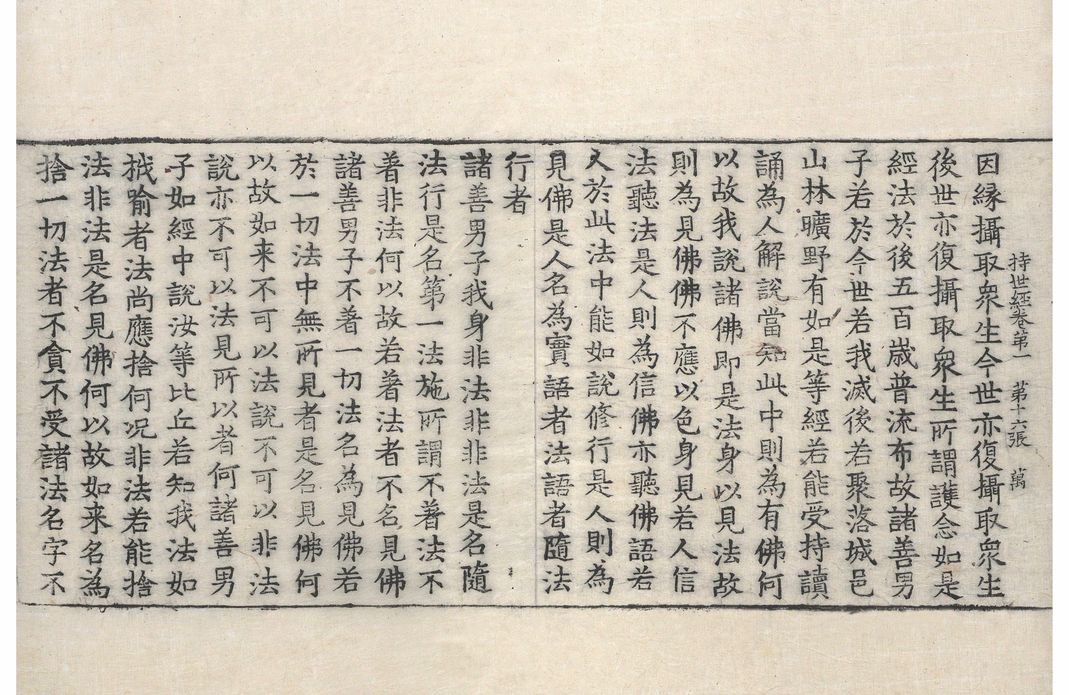 持世經卷第一　第十六張　萬
因縁攝取衆生今世亦復攝取衆生
後世亦復攝取衆生所謂護念如是
經法於後五百歲普流布故諸善男
子若於今世若我滅後若聚落城邑
山林曠野有如是等經若能受持讀
誦為人解說當知此中則為有佛何
以故我說諸佛即是法身以見法故
則為見佛佛不應以色身見若人信
法聽法是人則為信佛亦聽佛語若
人於此法中能如說修行是人則為
見佛是人名為實語者法語者隨法
行者
諸善男子我身非法非非法是名隨
法行是名第一法施所謂不著法不
著非法何以故若著法者不名見佛
諸善男子不著一切法名為見佛若
於一切法中無所見者是名見佛何
以故如来不可以法說不可以非法
說亦不可以法見所以者何諸善男
子如經中說汝等比丘若知我法如
栰喻者法尚應捨何况非法若能捨
法非法是名見佛何以故如来名為
捨一切法者不貪不受諸法名字不